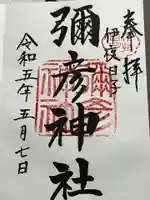 奉拝
伊夜日子
彌彦神社
令和五年五月七日